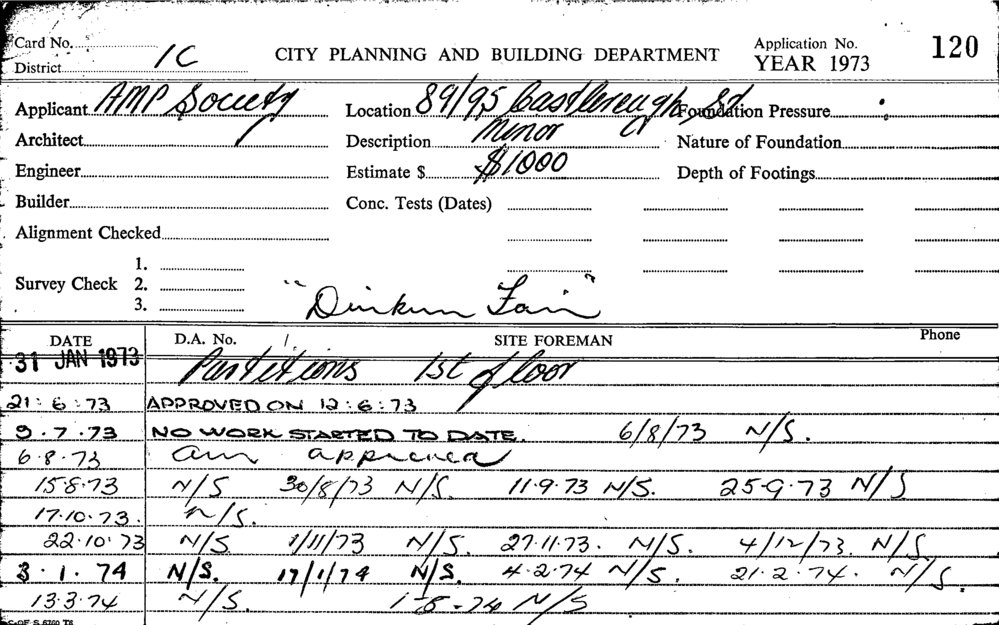 Card No.
District 1C
CITY PLANNING AND BUILDING DEPARTMENT
Application No. 120
YEAR 1973
Applicant AMP Society Location 89/95 Castlereagh St Foundation Pressure
Architect Description Minor Nature of Foundation
Engineer Estimate $ $1000 Depth of Footings
Builder Conc. Tests (Dates)
Alignment Checked
1.
Survey Check 2.
3.
"Dinkum Fair"
DATE D.A. No. SITE FOREMAN Phone
31 JAN 1973 Partitions 1st floor
21:6:73 APPROVED ON 12:6:73
9.7.73 NO WORK STARTED TO DATE. 6/8/73 N/S.
6.8.73
15.8.73 N/S 30/8/73 N/S. 11.9.73 N/S. 25.9.73 N/S
17.10.73. N/S.
22.10.73 N/S 1/11/73 N/S. 27.11.73. N/S. 4/12/73. N/S
3.1.74 N/S. 17/1/74 N/S. 4.2.74 N/S. 21.2.74. N/S.
13.3.74 N/S. N/S